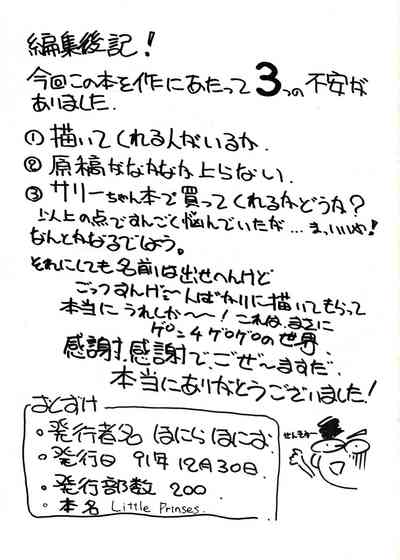 編集後記！
今回この本を作にあたって3つの不安が
ありました.
① 描いてくれる人がいるか.
② 原稿がなかなか上らない.
③ サリーちゃん本で買ってくれるかどうか？
以上の点ですんごく悩んでいたが…まっいいや!
なんとかなるでしょう。
それにしても名前は出せへんけど
ごっつすんげ〜人ばかりに描いてもらって
本当にうれしか〜〜！これは、まさに
の世界
感謝、感謝でごぜ〜ますだ.
本当にありがとうございました！
おとずけ
・発行者名 はにらはにお
・発行日 91年12月30日.
・発行部数 200
・本名 Little Prinses.